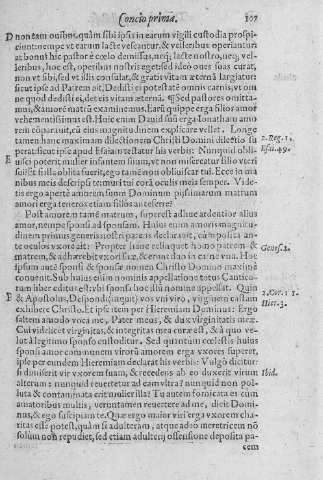 Concio prima. 107
D non tam ouibus, quàm sibi ipsi in earum vigili custodia prospi-
ciunt: nempe vt earum lacte vescantur, & velleribus operiantur:
at bonus hic pastor è cœlo demissus, neq; lacte nostro, neq; vel-
leribus, hoc est, operibus nostris egetised ideo oues suas curat,
non vt sibi, sed vt illis consulat, & gratis vitam æternã largiatur
sicut ipse ad Patrem ait, Dedisti ei potestatē omnis carnis, vt om
ne quod dedisti ei, det eis vitam æternã. ¶Sed pastores omitta-
mus, & amorē matrũ examinemus. Earũ quippe erga filios amor
vehementissimus est. Huic enim Dauid suũ erga Ionatham amo
rem cõparauit, cũ eius magnitudinem explicare vellet. Longe
tamen hanc maximam dilectionem Christi Domini dilectio su 2. Reg. 1.
perat: sicut ipse apud Esaiam testatur his verbis: Nunquid obli- Esai. 49.
E uisci potest mulier infantem suum, vt non misereatur filio vteri
sui: & si illa oblita fuerit, ego tamē non obliuiscar tui. Ecce in ma
nibus meis descripsi te: muri tui corã oculis meis semper. Vide-
tis ergo apertè amorem suum Dominum piissimarum matrum
amori erga teneros etiam filios anteferre?
Post amorem tamē matrum, superest adhuc ardentior alius
amor, nempe sponsi ad sponsam. Huius enim amoris magnitu-
dinem primus generis nostri parens declarauit, cũ in posita an-
te oculos vxore ait: Propter hanc relinquet homo patrem & Genes. 2.
matrem, & adhærebit vxori suæ, & erunt duo in carne vna. Hoc
ipsum autē sponsi & sponsæ nomen Christo Domino maximè
conuenit. Sub huius enim nominis appellatione totus Cantico-
rum liber editus est: vbi sponsi hoc illũ nomine appellat. Quin
F & Apostolus, Despondi (inquit) vos vni viro, virginem castam 2. Cor. 11
exhibere Christo. Et ipse item per Hieremiam Dominus: Ergo Hier. 3.
saltem amodò voca me, Pater meus, & dux virginitatis meæ.
Cui videlicet virginitas, & integritas mea curæ est, & à quo ve-
lut à legitimo sponso custoditur. Sed quantùm cœlestis huius
sponsi amor communem virorũ amorem erga vxores superet,
ipse per eundem Hieremiam declarat his verbis: Vulgò dicitur
si dimiserit vir vxorem suam, & recedens ab eo duxerit virum Ibid.
alterum: nunquid reuertetur ad eam vltra? nunquid non pol-
luta & contaminata erit mulier illa? Tu autem fornicata es cum
amatoribus multis, veruntamen reuertere ad me, dicit Domi-
nus, & ego suscipiam te. Quæ ergo maior viri erga vxorem cha-
ritas esse potest, quàm si adulteram, atque adeo meretricem nõ
solùm non repudiet, sed etiam adulterij offensione deposita pa-
cem